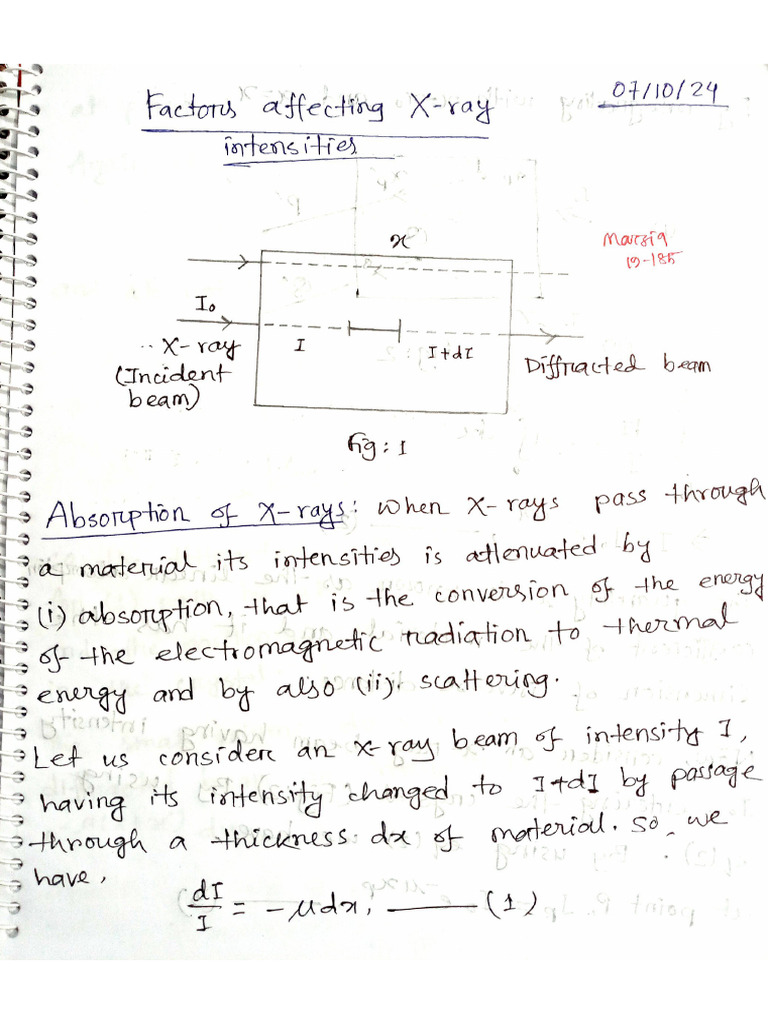 07/10/24
Factors affecting X-ray
intensities
x
Marzia
19-185
I₀
X-ray
(Incident
beam)
I
I+dI
Diffracted beam
Fig: 1
Absorption of X-rays: When X-rays pass through
a material its intensities is attenuated by
(i) absorption, that is the conversion of the energy
of the electromagnetic radiation to thermal
energy and by also (ii). scattering.
Let us consider an X-ray beam of intensity I,
having its intensity changed to I+dI by passage
through a thickness dx of material. So, we
have,
dI/I = -μdx, —— (1)